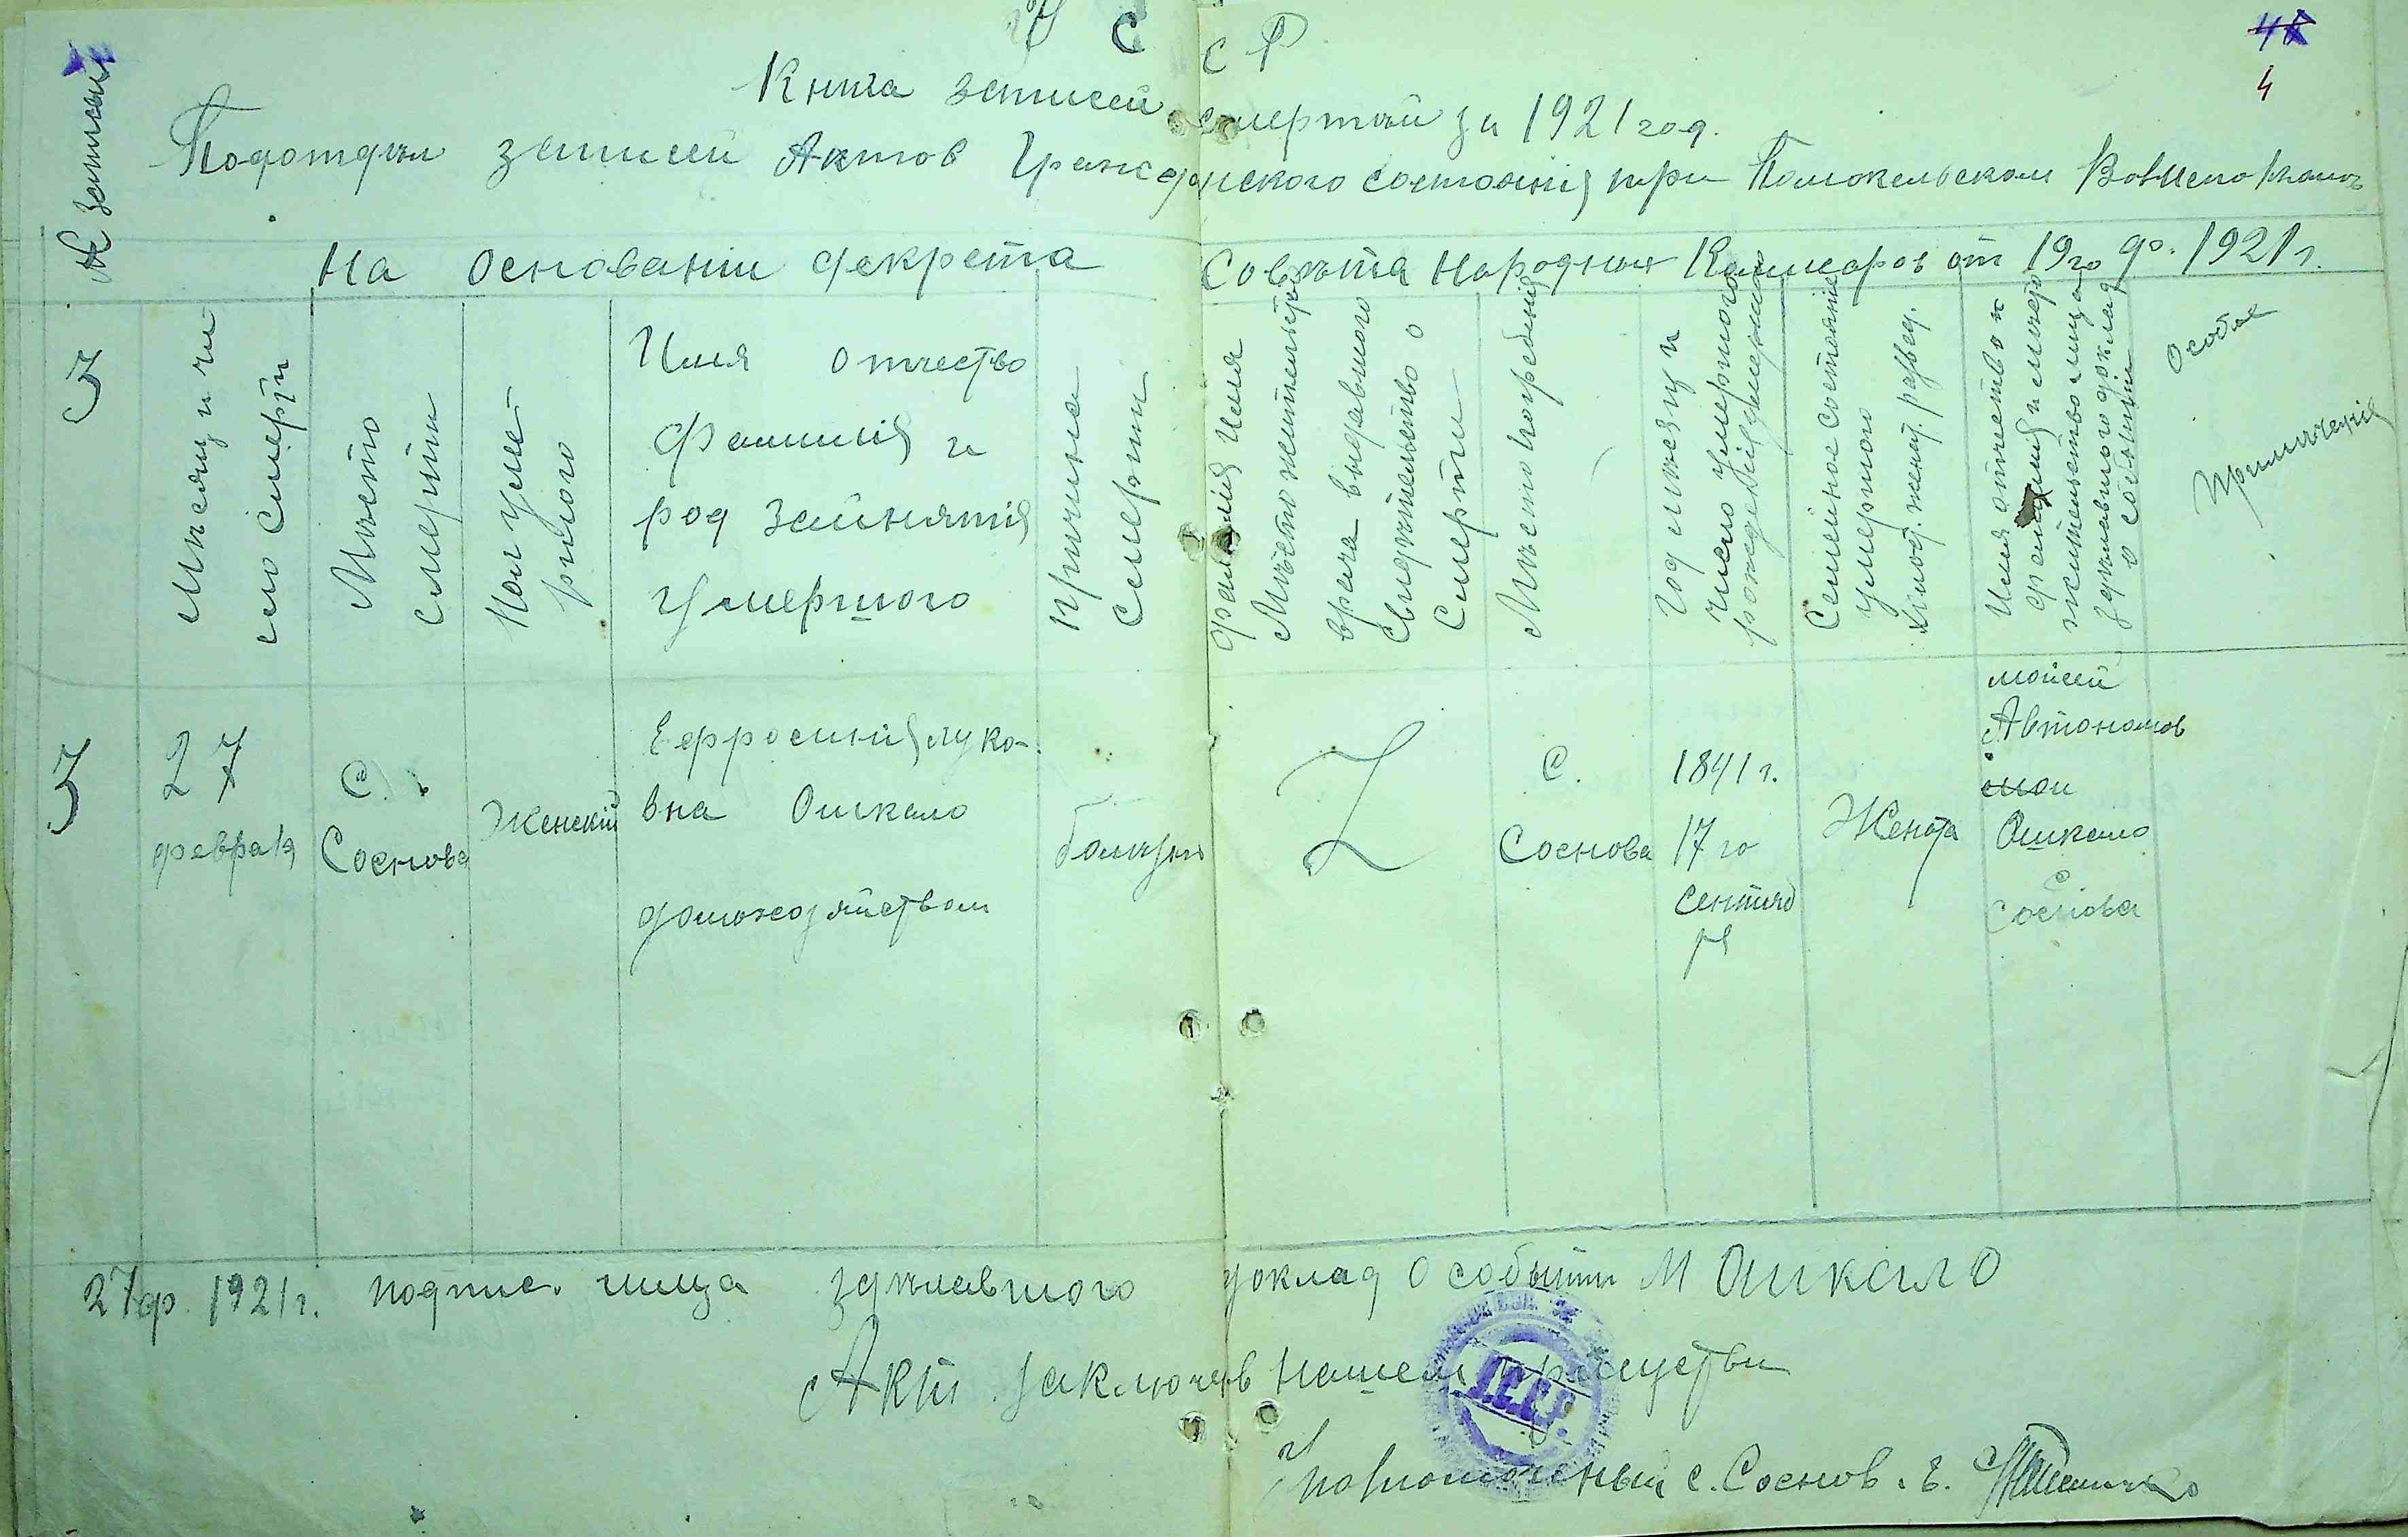 У С С Р
48
4
Книга записей смертей за 1921 год.
Подотдел записей Актов Гражданского состояния при Помокельском
На основании декрета Совѣта Народных Комисаров от 19го до. 1921 г.
№ записи
3
Мѣсяц и чи
сло смерти
Мѣсто
смерти
Пол умер
шого
Имя отчество
фамилия и
род занятия
Умершого
Причина
смерти
фамилия имя
Мѣсто жительство
врача выдавшого
свидѣтельство о
смерти
Мѣсто погребения
Год мѣсяц и
число умершого
рождения
Семейное состояние
умершого
холод. женат. развед.
Имя отчество и
фамилия и мѣсто
жительство лица
здѣлавшого доклад
о событии
Особое
Примѣчания
3
27
февраля
С.
Соснова
Женский
Ефросиния луко-
вна Ошкало
домохозяйством
Z
С.
Соснова
1841 г.
17 го
сентяб
ря
Жената
моисей
Автономов
Ошкало
с
Соснова
27 ф. 1921 г. подпис. лица здѣлавшого доклад о событии М Ошкало
Акт заключ в нашем присуствии
У.С.С.Р.
Уполномоченый с. Соснов. Е.